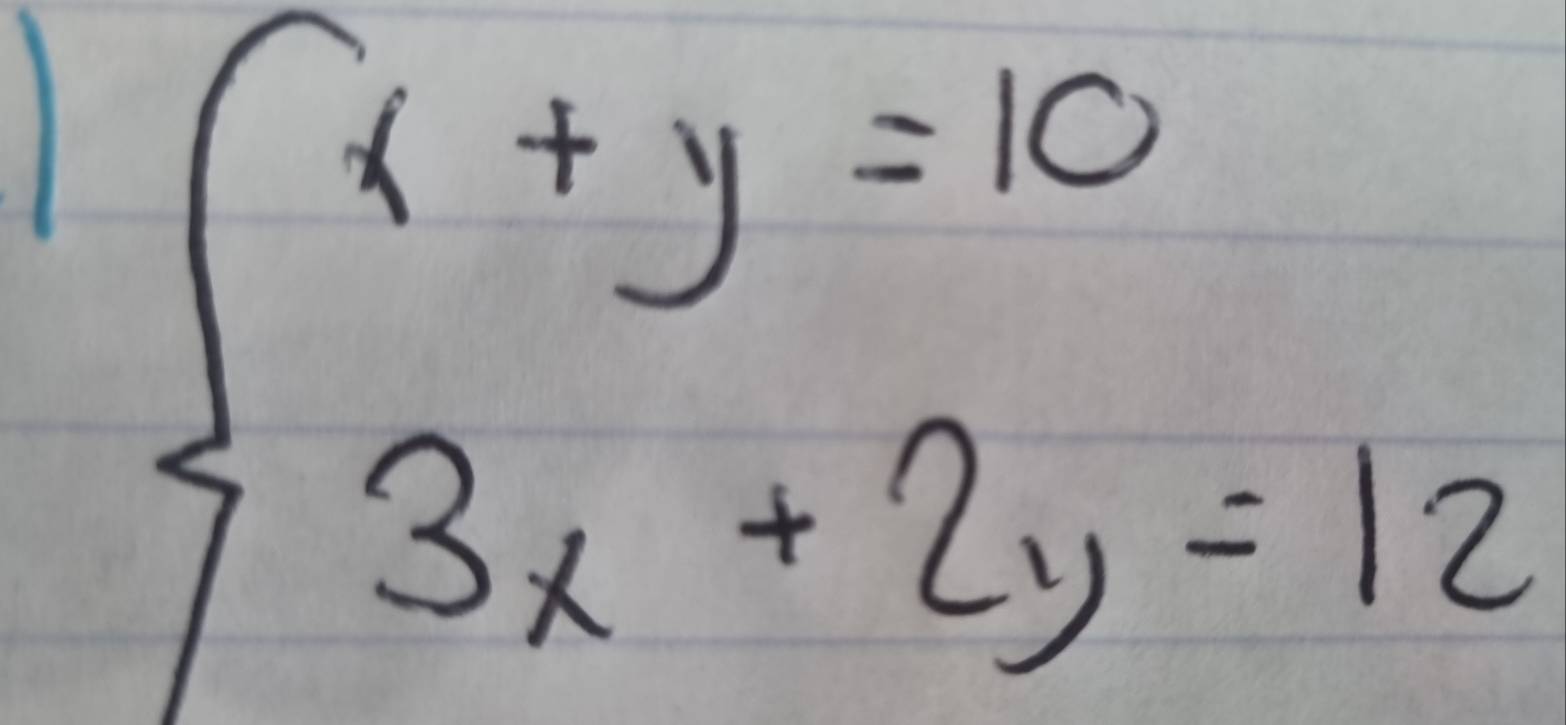 ) x + y = 10
3x + 2y = 12